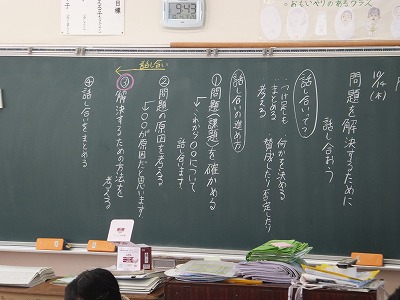 おもいやりのあるクラス
目標
9:43
10/4(木)
問題を解決するために
話し合おう
話し合いって
・何かを決める
・賛成したり否定したり
・つけ足しも
・まとめる
・考える
話し合いの進め方
①問題(課題)を確かめる
これから〇〇について
話し合います。
②問題の原因を考える
〇〇が原因だと思います。
③解決するための方法を
考える
話し合い
④話し合いをまとめる